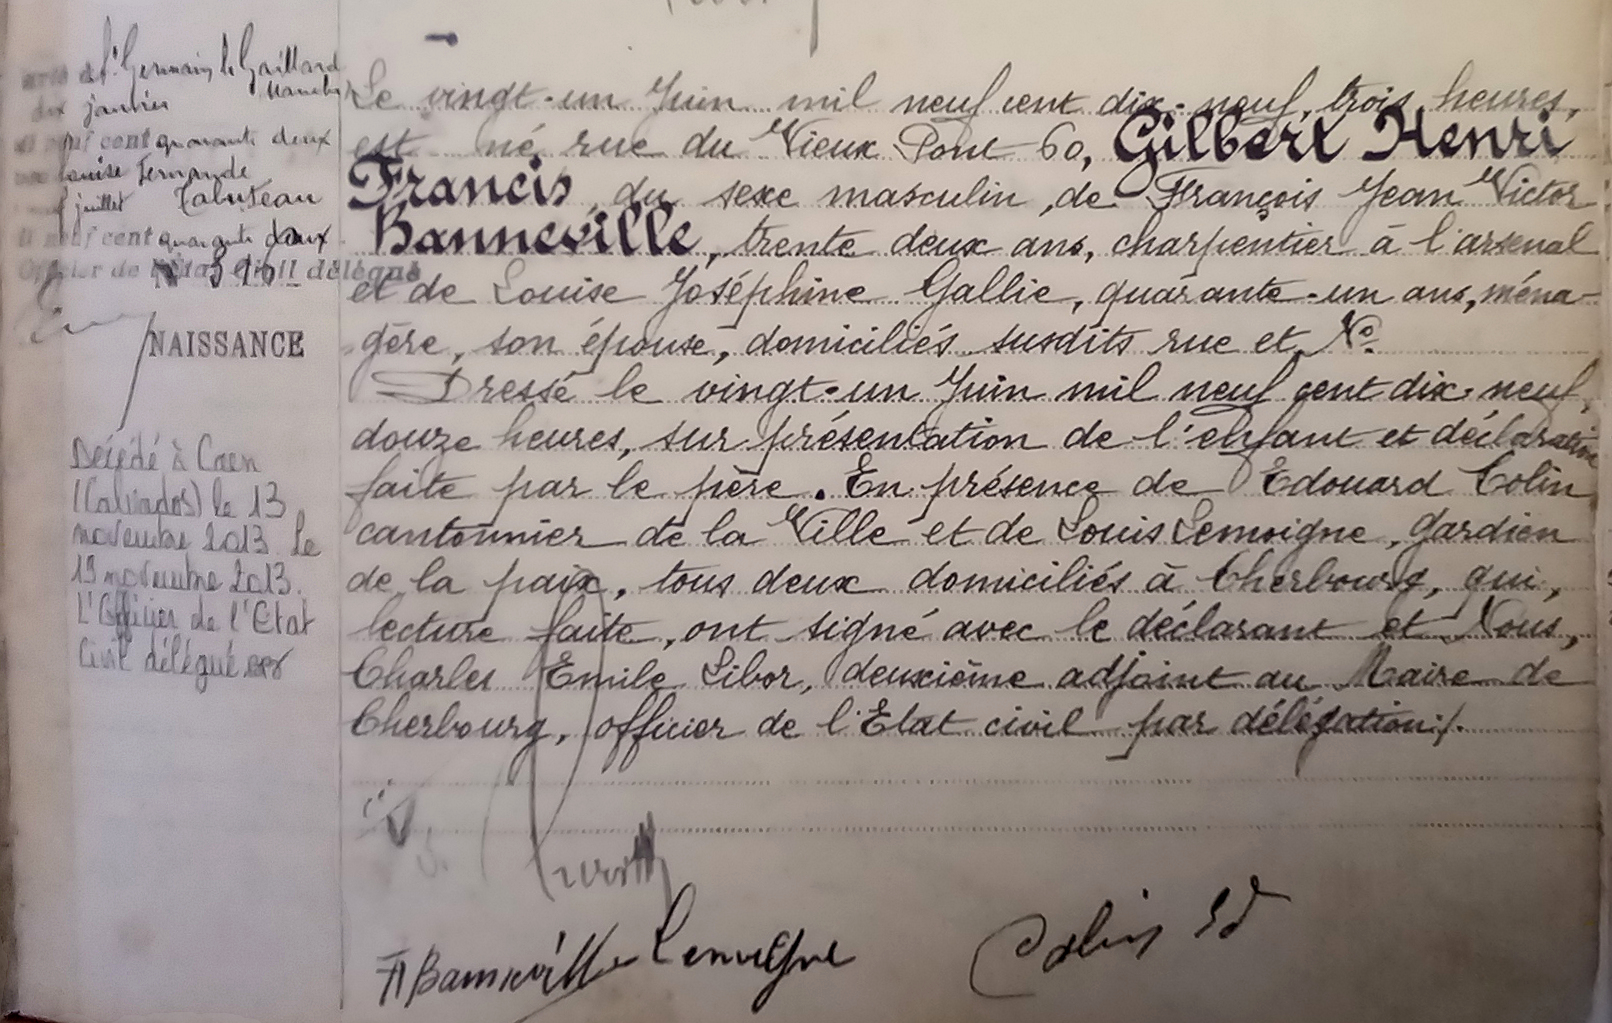 St Germain le Gaillard
Manche
dix janvier
neuf cent quarante deux
Louise Fernande
juillet Tabuteau
neuf cent quarante deux
Officier de l'Etat civil délégué
NAISSANCE
Décédé à Caen
(Calvados) le 13
novembre 2013 Le
19 novembre 2013.
L'Officier de l'Etat
Civil délégué
Le vingt-un Juin mil neuf cent dix-neuf, trois heures,
est né rue du Vieux Pont 60, Gilbert Henri
Francis, du sexe masculin, de François Jean Victor
Banneville, trente deux ans, charpentier à l'arsenal
et de Louise Joséphine Gallie, quarante-un ans, ména-
gère, son épouse, domiciliés susdits rue et No.
Dressé le vingt-un Juin mil neuf cent dix-neuf,
douze heures, sur présentation de l'enfant et déclaration
faite par le père. En présence de Edouard Colin
cantonnier de la Ville et de Louis Lemoigne, gardien
de la paix, tous deux domiciliés à Cherbourg, qui,
lecture faite, ont signé avec le déclarant et Nous,
Charles Emile Libor, deuxième adjoint au Maire de
Cherbourg, officier de l'Etat civil par délégation ./.
F Banneville Lemoigne Colin Ed